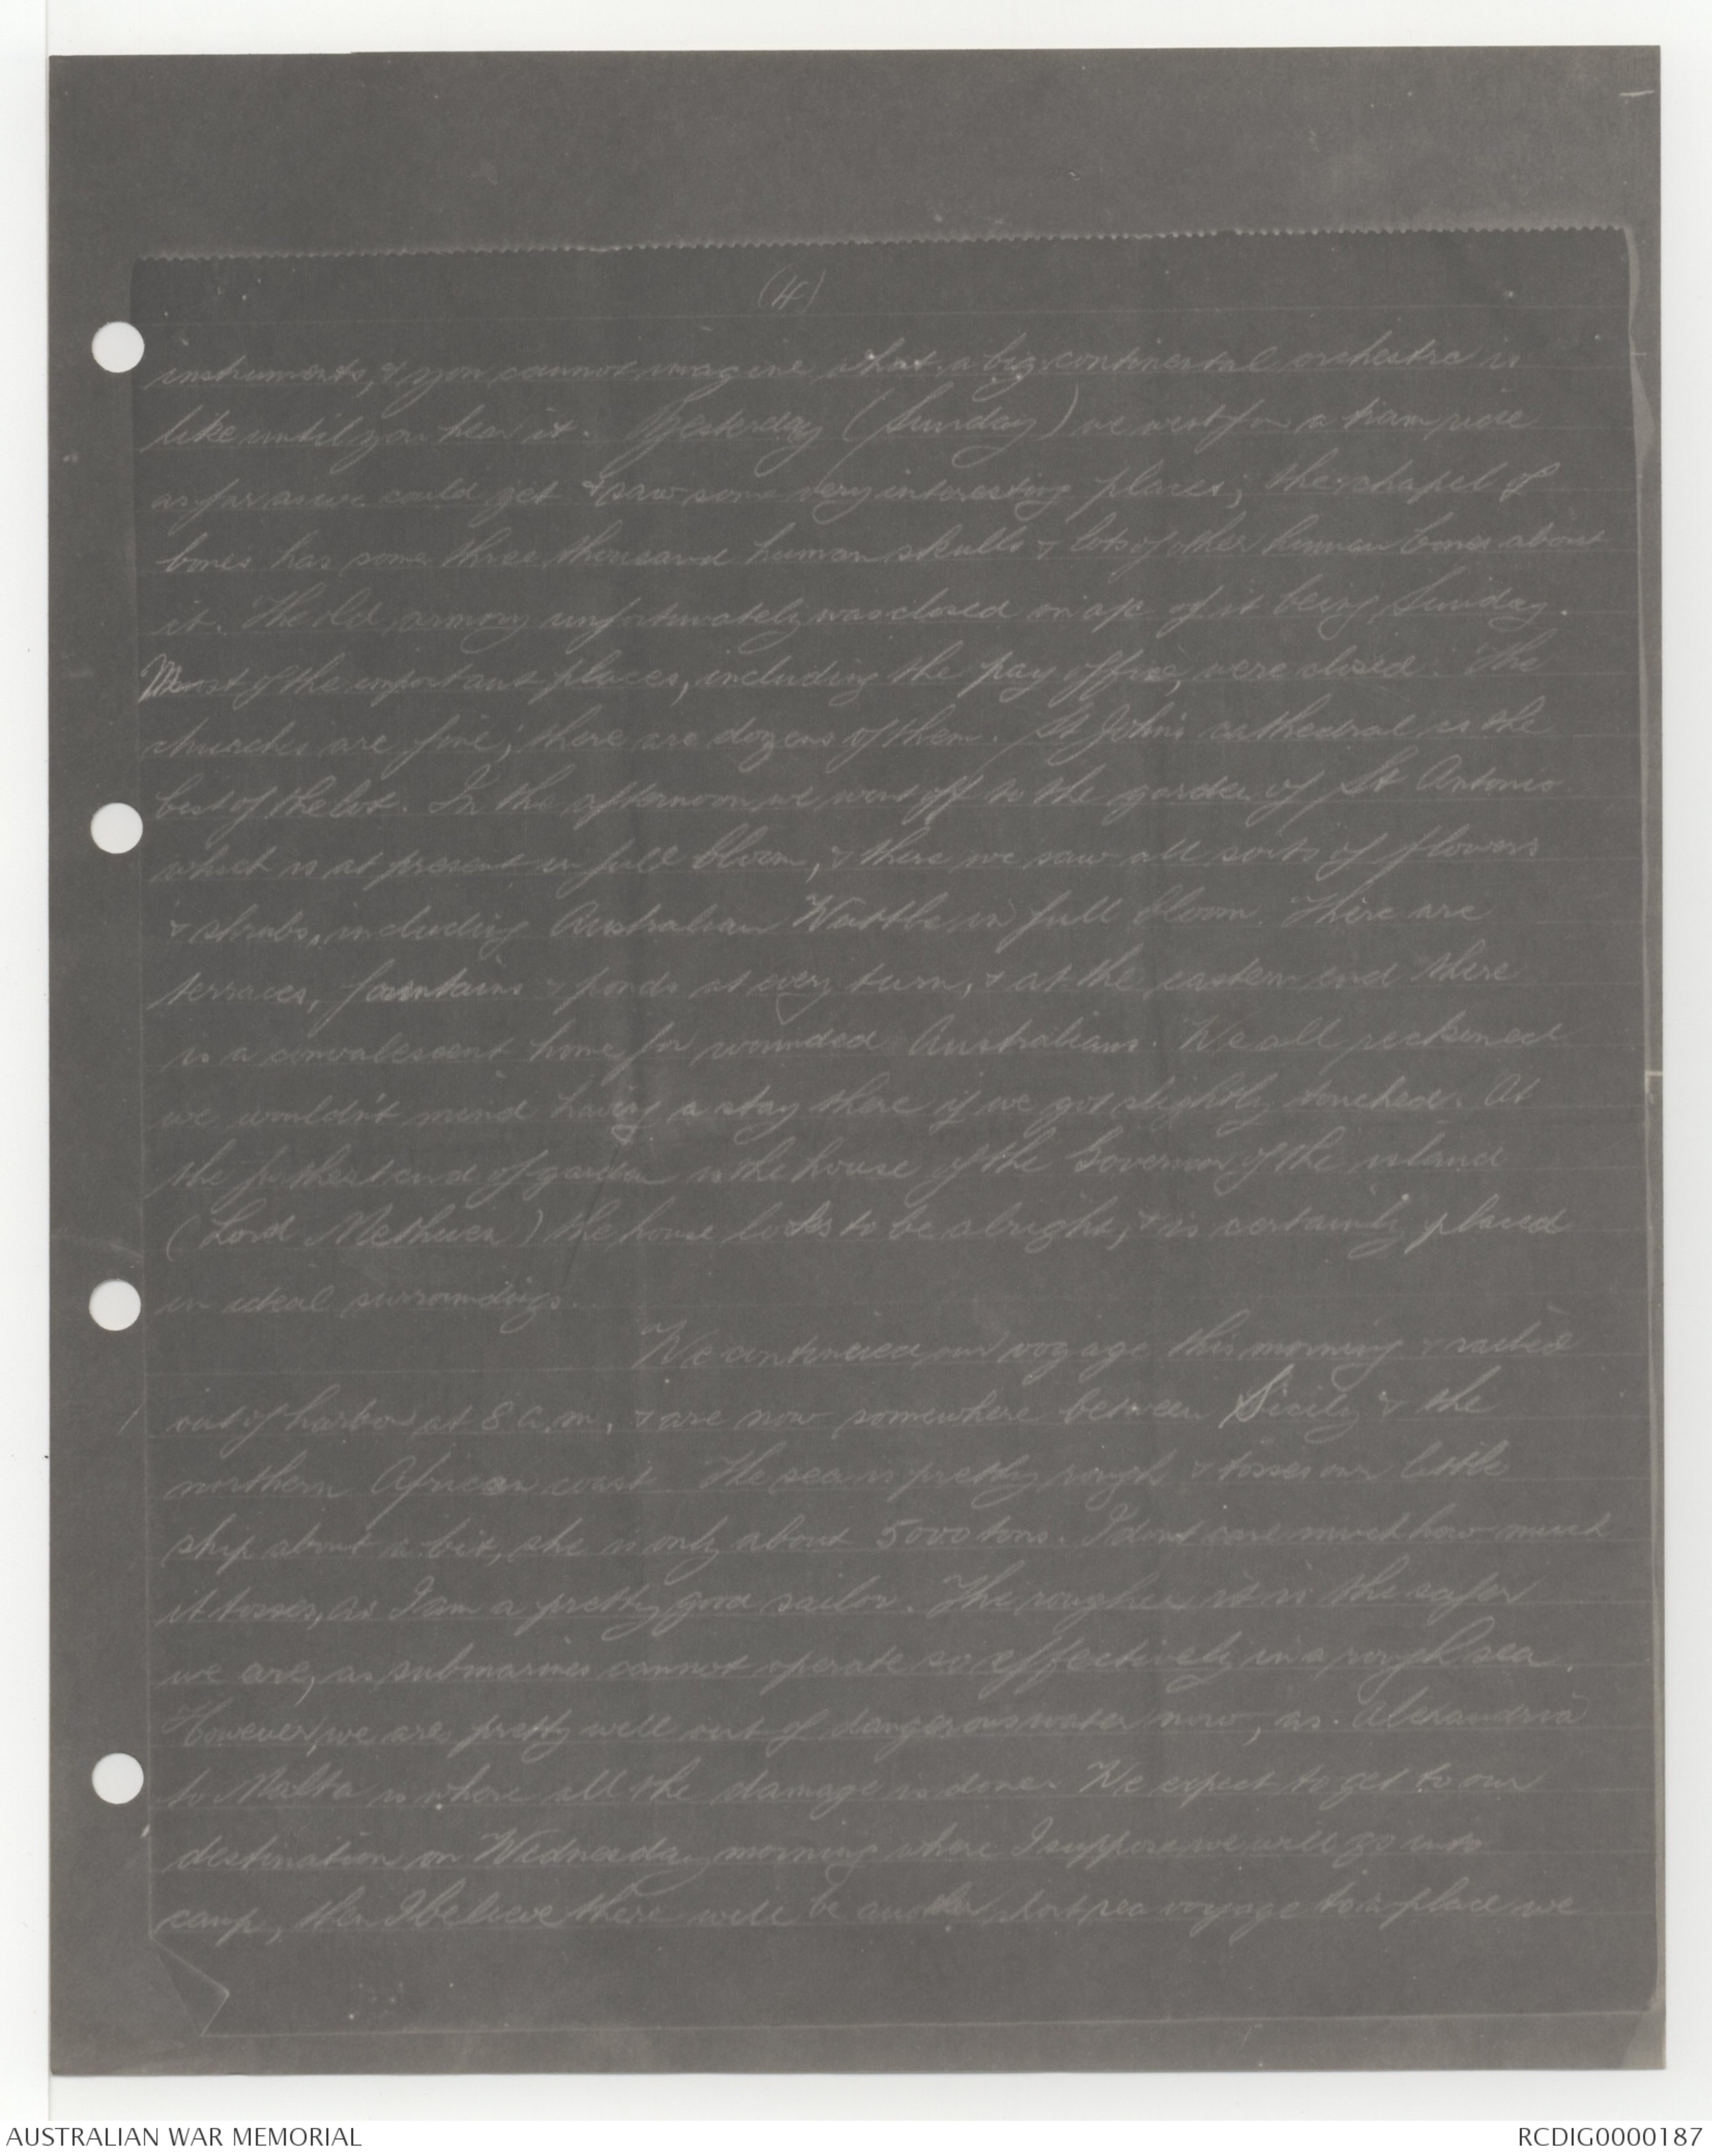 (4)
instruments, & you cannot imagine what a big continental orchestra is
like until you hear it. Yesterday (Sunday) we went for a tram ride
as far as we could get & saw some very interesting places; the chapel of
bones has some three thousand human skulls & lots of other human bones about
it. The old armory unfortunately was closed on a/c of it being Sunday.
Most of the important places, including the pay office, were closed. The
churches are fine, there are dozens of them. St John's cathedral is the
best of the lot. In the afternoon we went off to the garden of St Antonio
which is at present in full bloom, & there we saw all sorts of flowers
& shrubs, including Australian Wattle in full bloom. There are
terraces, fountains & ponds at every turn, & at the eastern end there
is a convalescent home for wounded Australians. We all reckoned
we wouldn't mind having a stay there if we got slightly touched. At
the furthest end of garden is the house of the Governor of the island
(Lord Methuen) the house looks to be alright, & is certainly placed
in ideal surroundings.
We continued our voyage this morning & sailed
out of harbor at 8 a.m. & are now somewhere between Sicily & the
northern African coast. The sea is pretty rough & tosses our little
ship about a bit, she is only about 5000 tons. I dont care much how much
it tosses, as I am a pretty good sailor. The rougher it is the safer
we are, as submarines cannot operate so effectively in a rough sea.
However, we are pretty well out of dangerous water now, as Alexandria
to Malta is where all the damage is done. We expect to get to our
destination on Wednesday morning where I suppose we will go into
camp, then I believe there will be another short sea voyage to a place we
AUSTRALIAN WAR MEMORIAL
RCDIG0000187